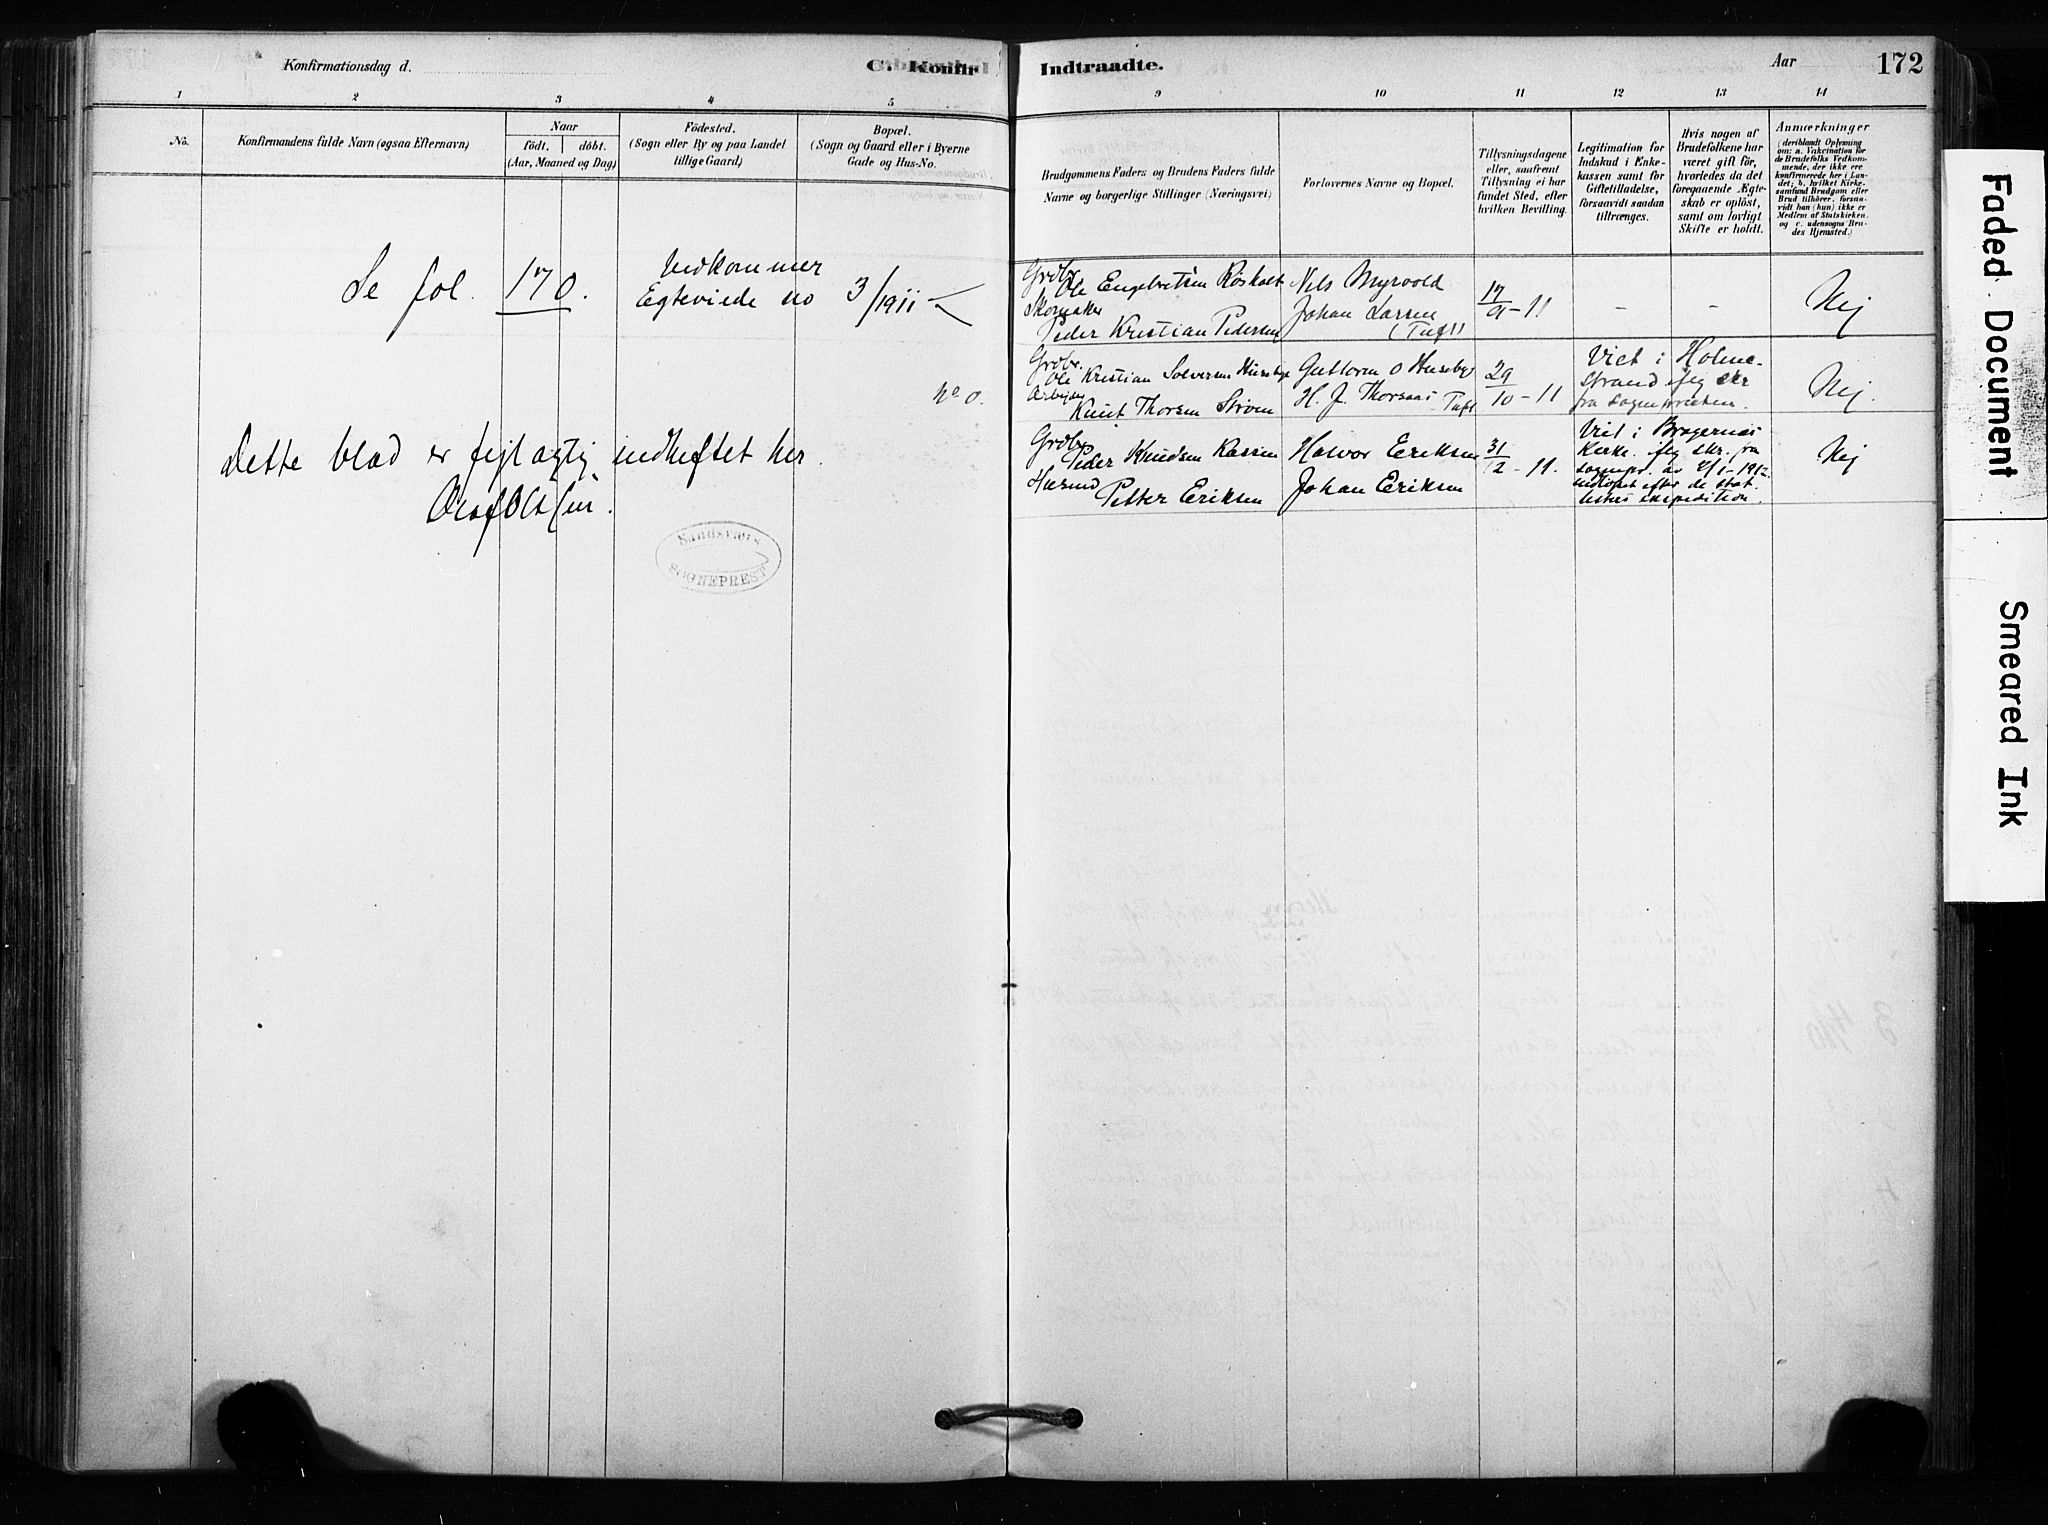 Konfirmationsdag d.
C. Konfir
1 2 3 4 5
No.
Konfirmandens fulde Navn (ogsaa Efternavn)
Naar
födt. döbt.
(Aar, Maaned og Dag)
Födested.
(Sogn eller By og paa Landet
tillige Gaard)
Bopæl.
(Sogn og Gaard eller i Byerne
Gade og Hus-No.
Se fol. 170.
Vedkommer
Egteviede no 3/1911
No 0.
Dette blad er fejlagtig indheftet her.
Olaf Olsen.
Sandsværs
SOGNEPREST
Indtraadte.
Aar 172
9 10 11 12 13 14
Brudgommens Faders og Brudens Faders fulde
Navne og borgerlige Stillinger (Næringsvei)
Forlovernes Navne og Bopæl.
Tillysningsdagene
eller, saafremt
Tillysning ei har
fundet Sted, efter
hvilken Bevilling.
Legitimation for
Indskud i Enke-
kassen samt for
Giftetilladelse,
forsaavidt saadan
tiltrænges.
Hvis nogen af
Brudefolkene har
været gift för,
hvorledes da det
foregaaende Ægte-
skab er oplöst,
samt om lovligt
Skifte er holdt.
Anmærkninger
(deriblandt Oplysning
om: a. Vakcination for
de Brudefolks Vedkom-
mende, der ikke ere
konfirmerede her i Lan-
det; b. hvilket Kirke-
samfund Brudgom eller
Brud tilhörer, forsaa-
vidt han (hun) ikke er
Medlem af Statskirken.
og c. udensogns Bru-
des Hjemsted.)
Grdbr.
Ole Engebretsen Røsholt
Skomaker
Peder Kristian Pedersen
Nils Myrvold
Johan Larsen
(Tuft)
17
/9 - 11
- -
Nej
Grdbr.
Ole Kristian Solversen Huseby
Arbejder
Knut Thorsen Skoen
Guttorm O Huseby
H. J. Thorsaas Tuft
29
/10 - 11
Viet i Holme-
strand iflg skr
fra sognepresten.
Nej.
Grdbr.
Peder Knudsen Kassen
Husmd
Petter Eriksen
Halvor Eriksen
Johan Eriksen
31
/12 - 11.
Viet i Bragernæs
Kirke. iflg skr. fra
sognepr. av 2/1-1912
indløpet efter de stat
listers expedition.
Nej
Faded Document
Smeared Ink